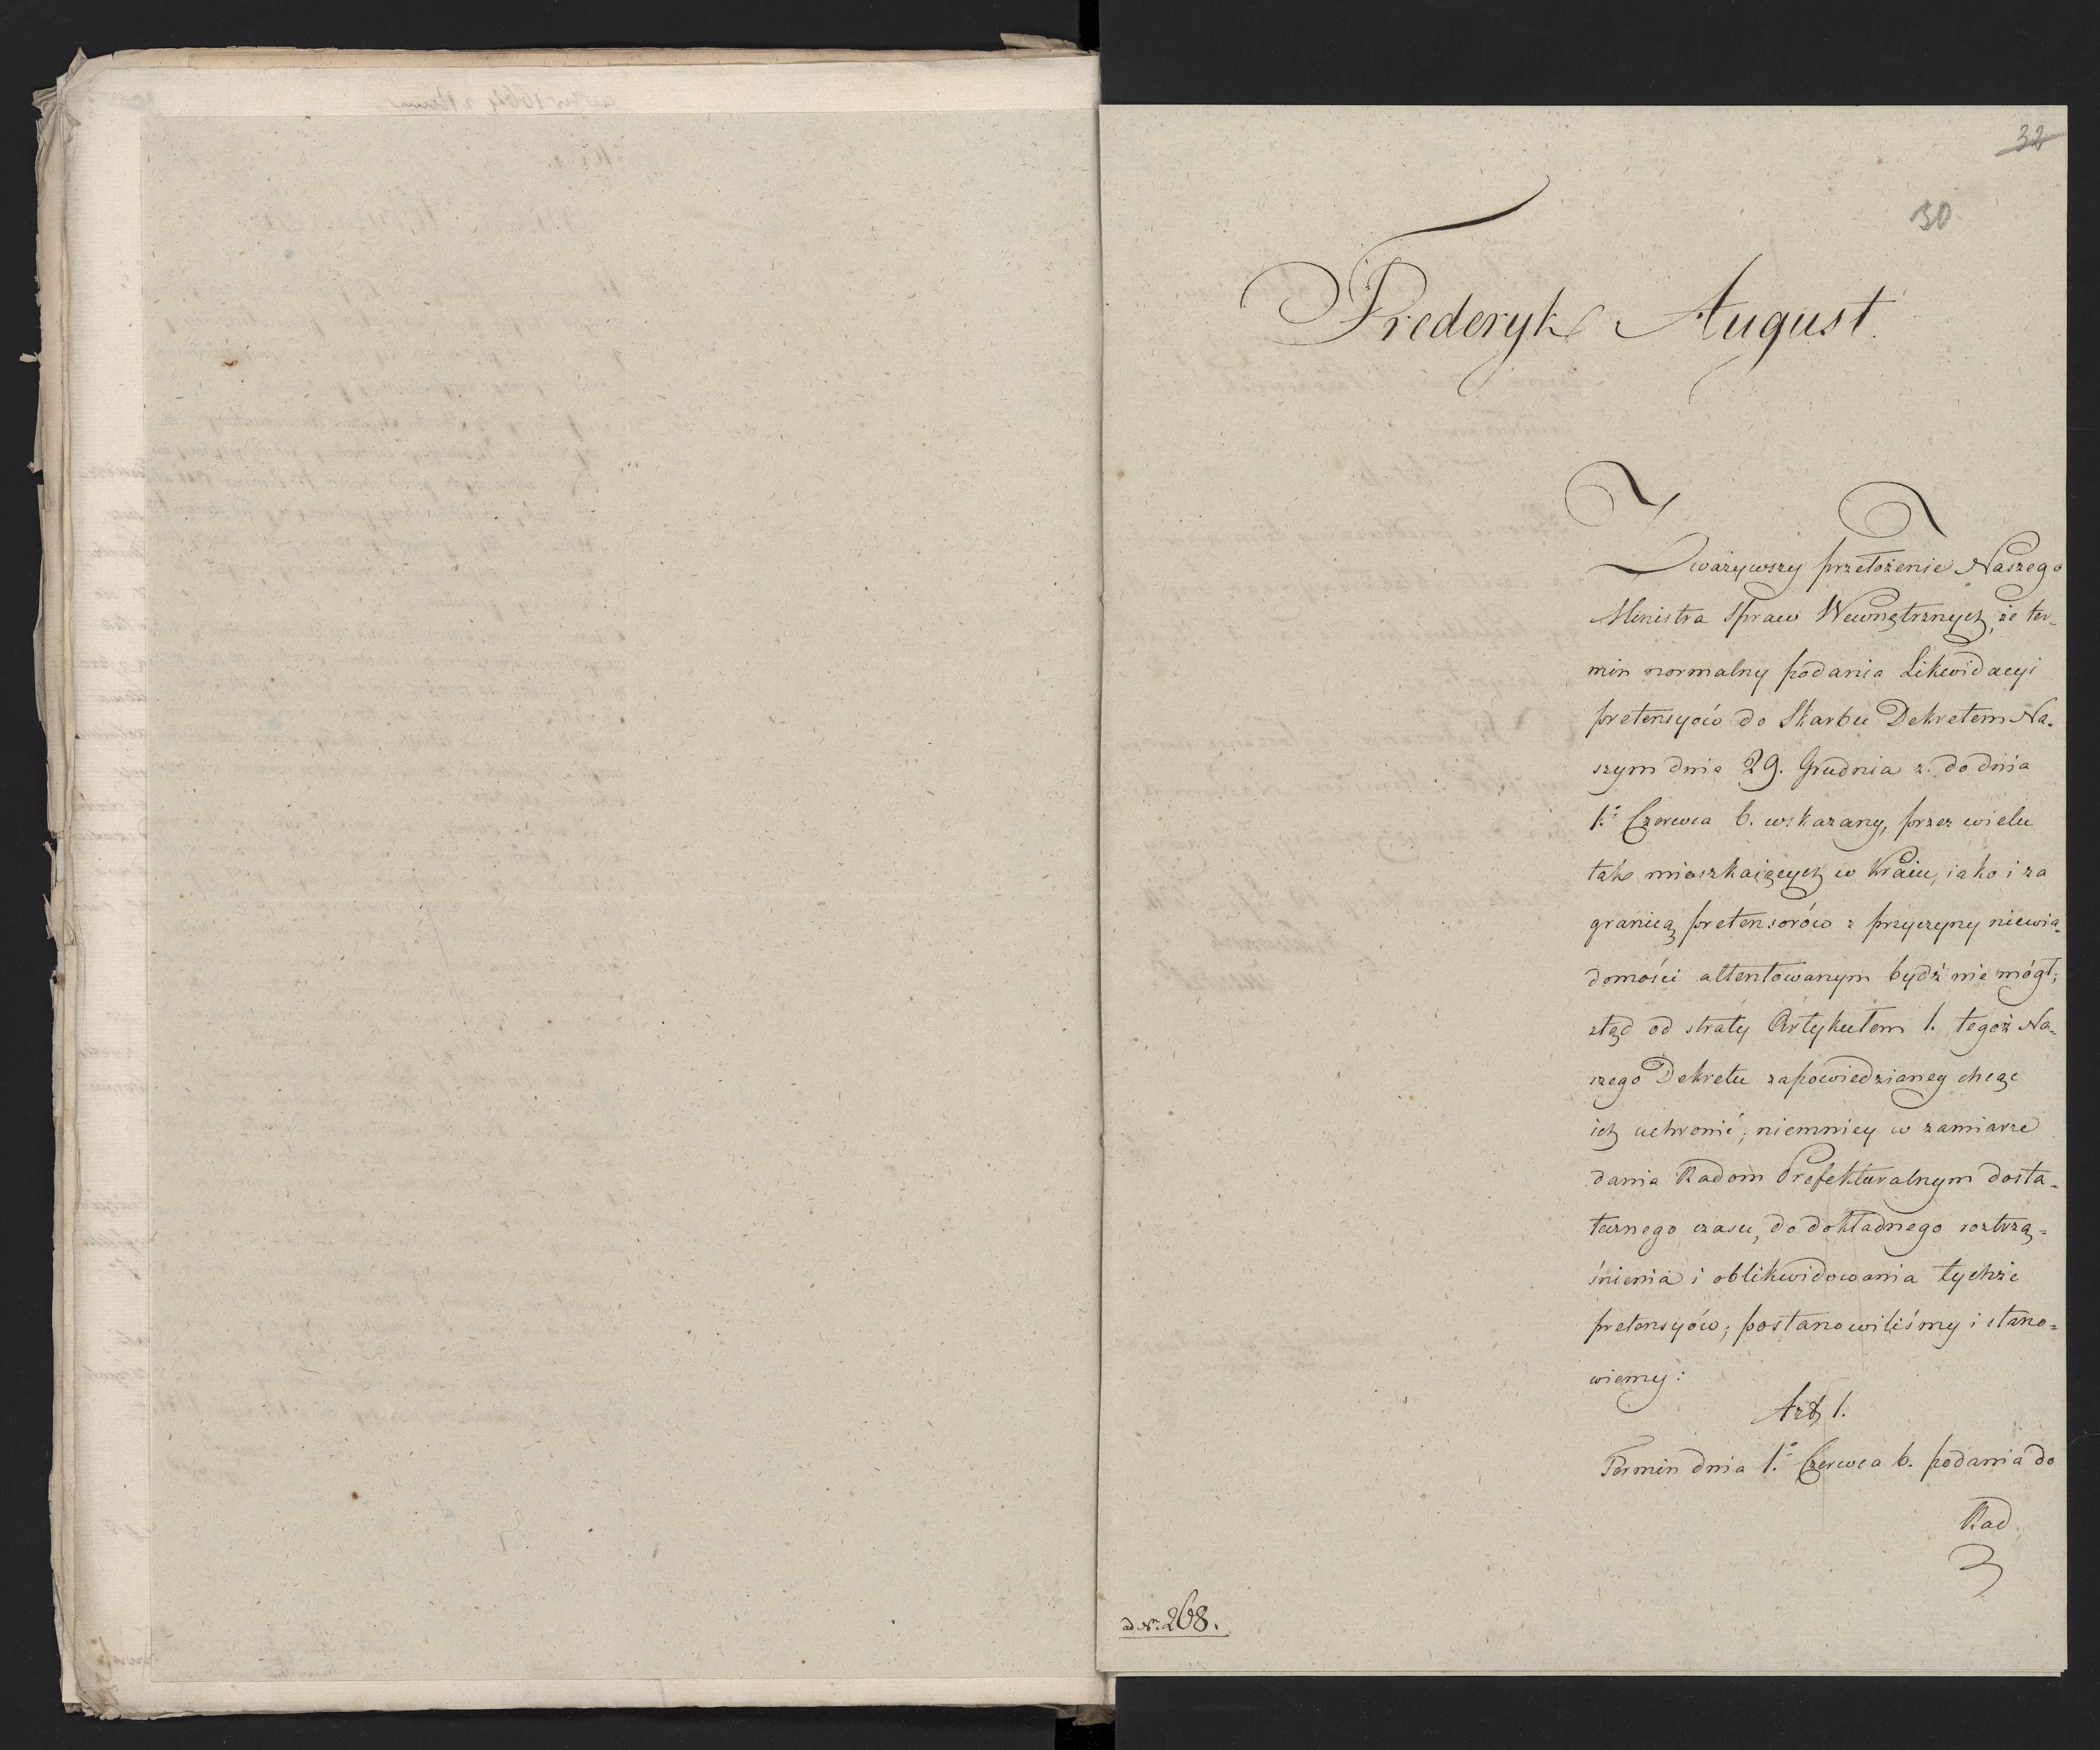 32
30
Frederyk August.
Zważywszy przełożenie Naszego
Ministra Spraw Wewnętrznych, że ter-
min normalny podania Likwidacyi
pretensyów do Skarbu Dekretem Na-
szym dnia 29. Grudnia z. do dnia
1.º Czerwca b. wskazany, przez wielu
tak mieszkaiących w Kraiu, iako i za
granicą pretensorów z przyczyny niewia-
domości attentowanym bydź nie mógł;
ztąd od straty Artykułem 1. tegoż Na-
szego Dekretu zapowiedzianey chcąc
ich uchronić; niemniey w zamiarze
dania Radom Prefekturalnym dosta-
tecznego czasu, do dokładnego roztrzą-
śnienia i oblikwidowania tychże
pretensyów; postanowiliśmy i stano-
wiemy:
Art. 1.
Termin dnia 1.º Czerwca b. podania do
Rad
ad Nr. 268.